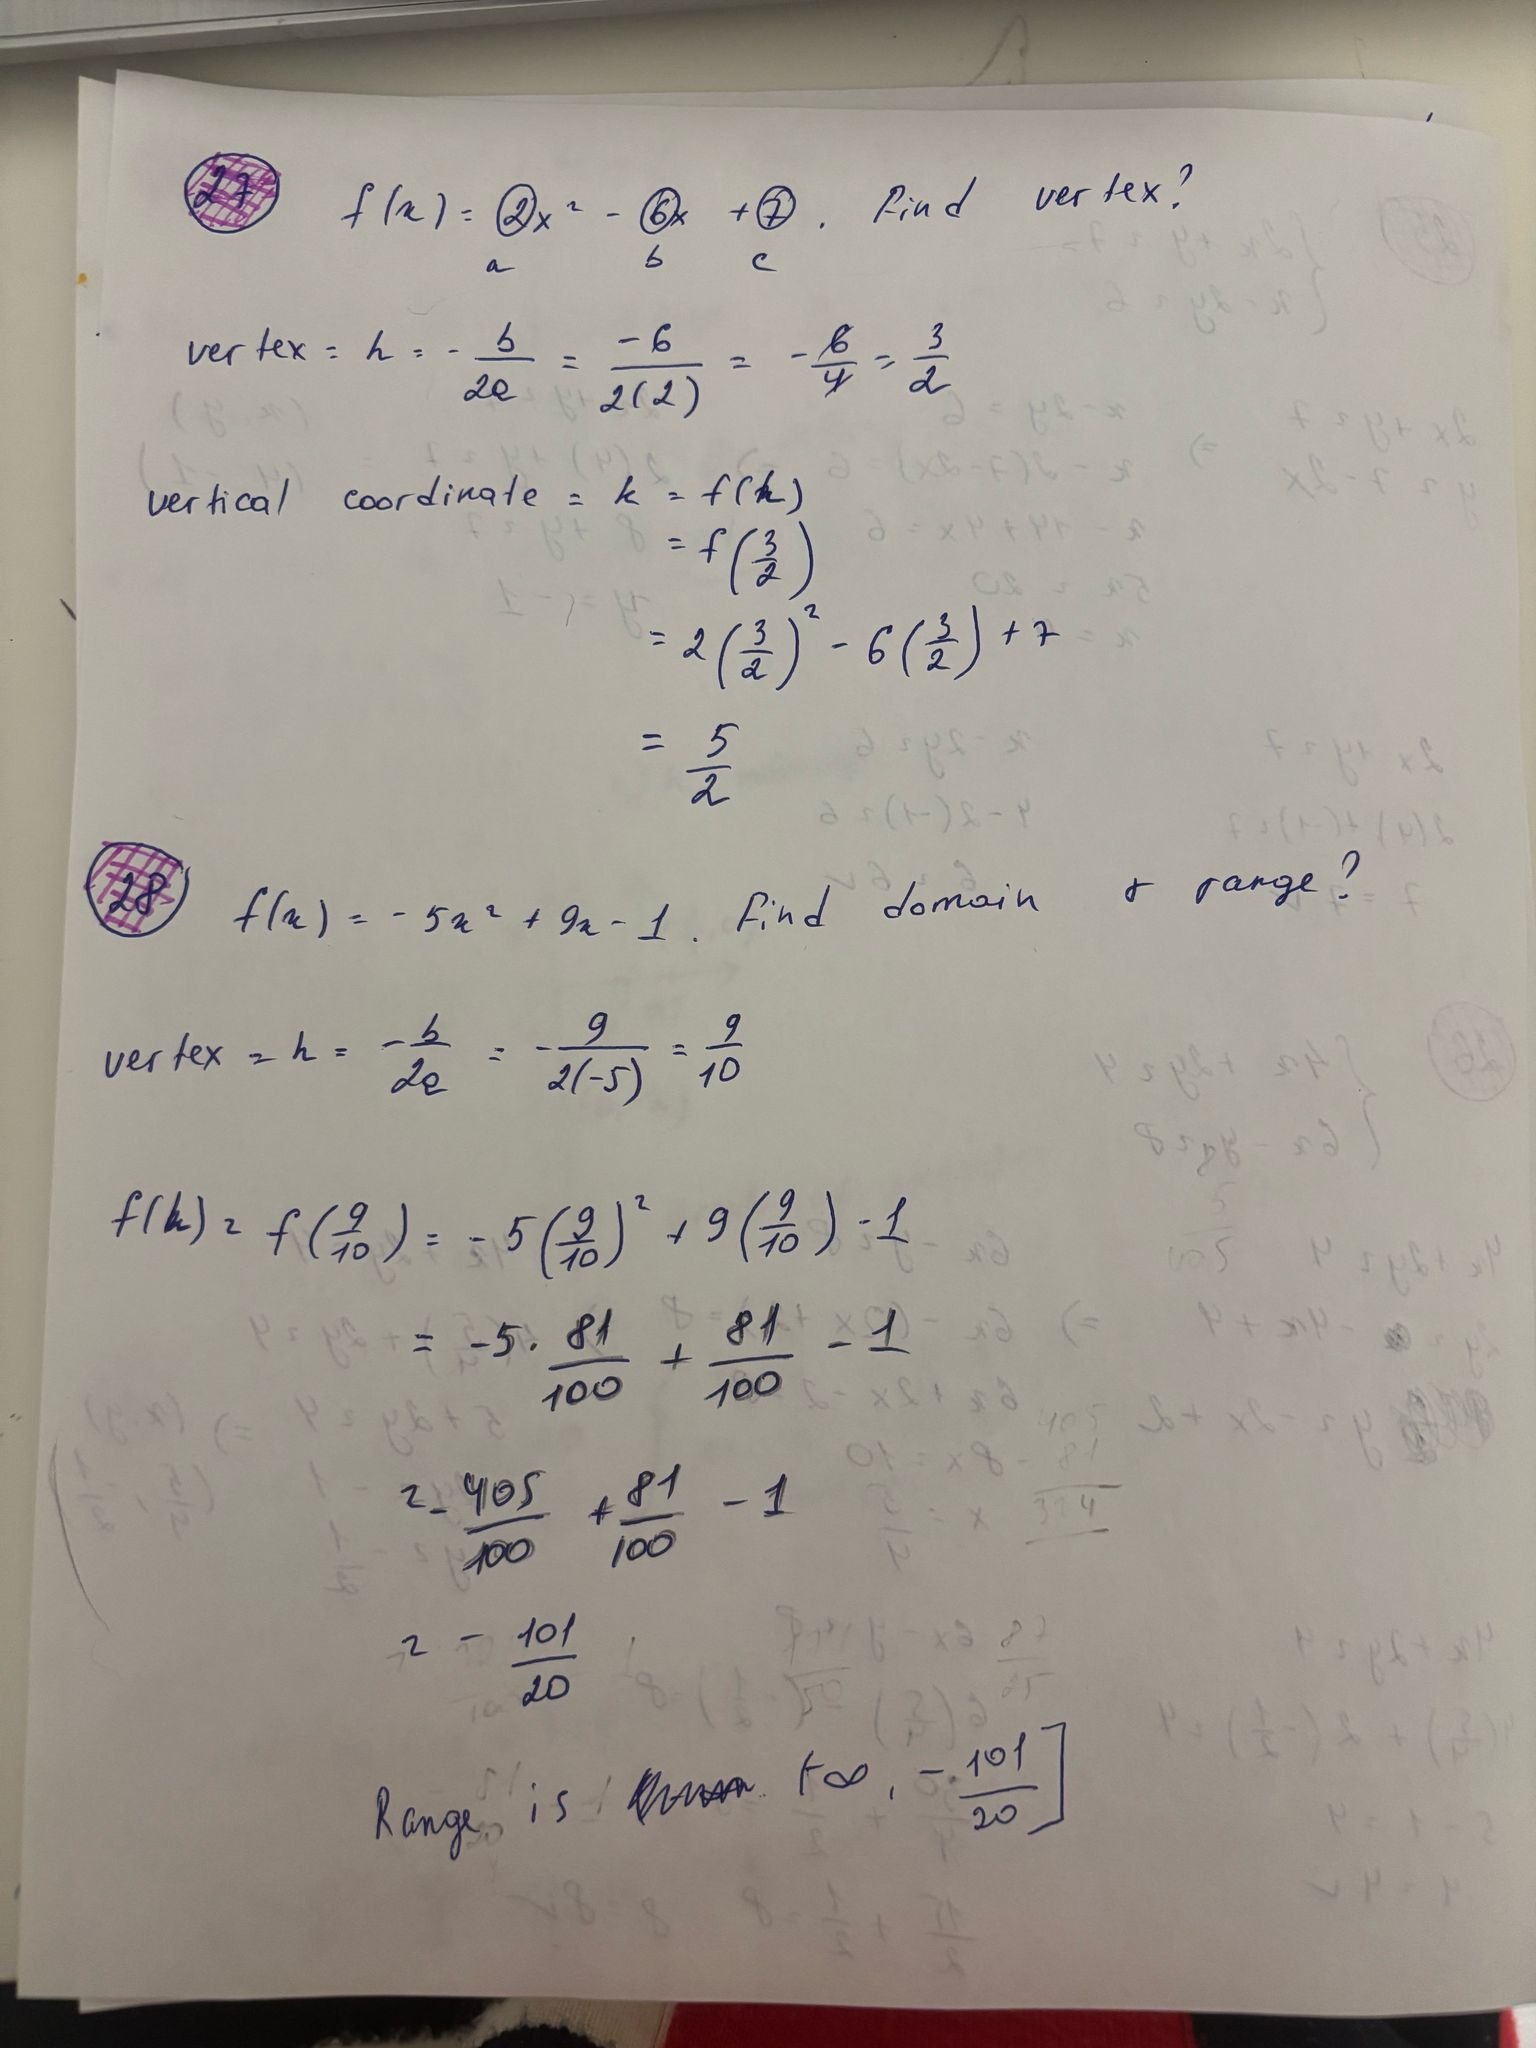 27 f(x) = 2x² - 6x + 7. Find vertex?
a b c
vertex = h = - b/2a = -6/2(2) = - 6/4 = 3/2
vertical coordinate = k = f(h)
= f(3/2)
= 2(3/2)² - 6(3/2) + 7
= 5/2
28 f(x) = - 5x² + 9x - 1. Find domain & range?
vertex = h = -b/2a = -9/2(-5) = 9/10
f(h) = f(9/10) = - 5(9/10)² + 9(9/10) - 1
= -5 · 81/100 + 81/100 - 1
= - 405/100 + 81/100 - 1
= - 101/20
Range is (-∞, - 101/20]